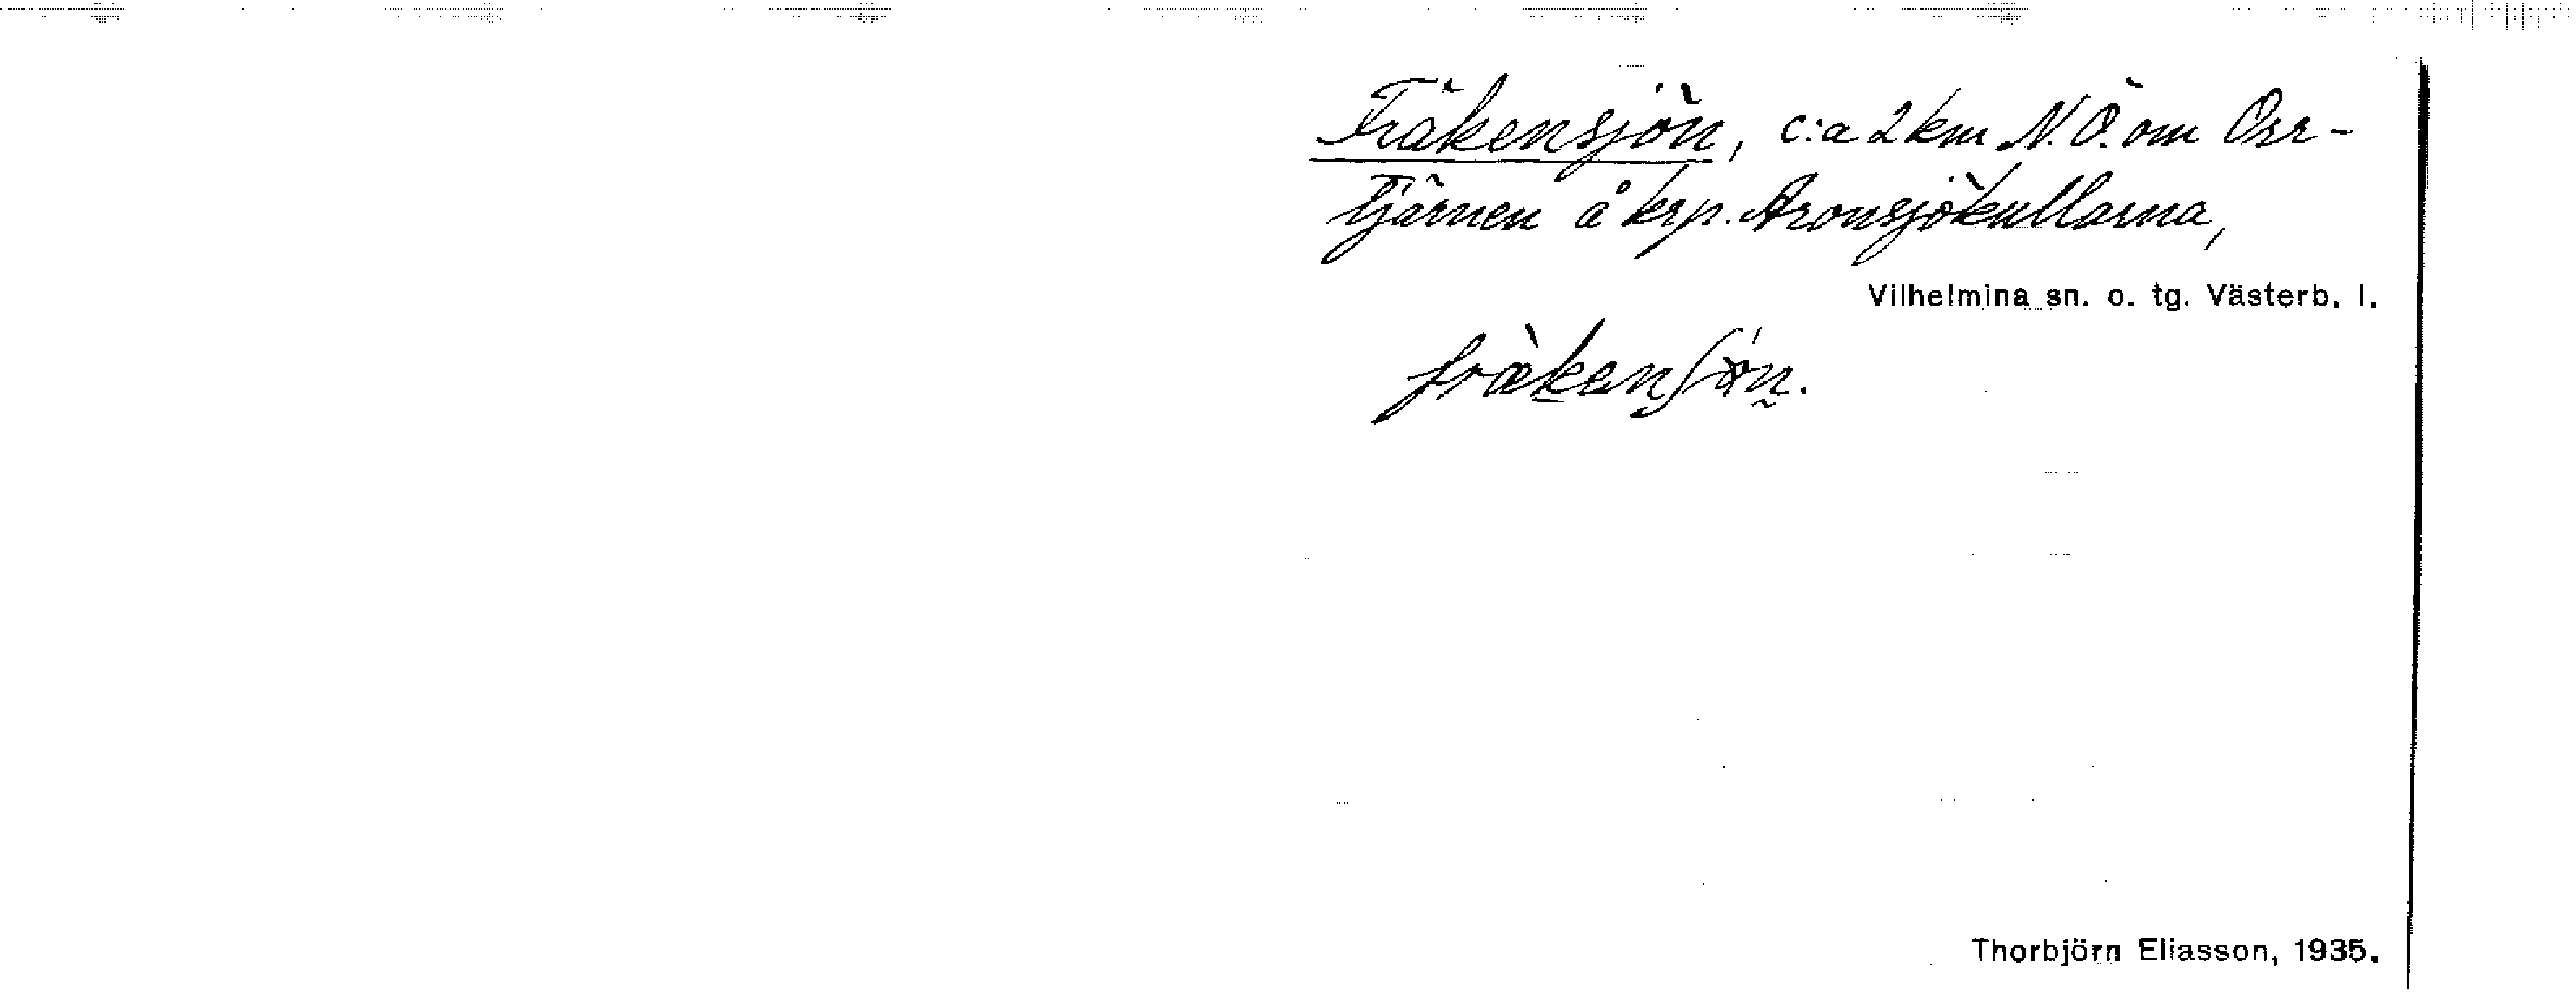 Fräkensjön, c:a 2 km N.Ö. om Orr-
tjärnen å krp. Aronsjökullarna,
Vilhelmina sn. o. tg. Västerb. l.
Thorbjörn Eliasson, 1935.